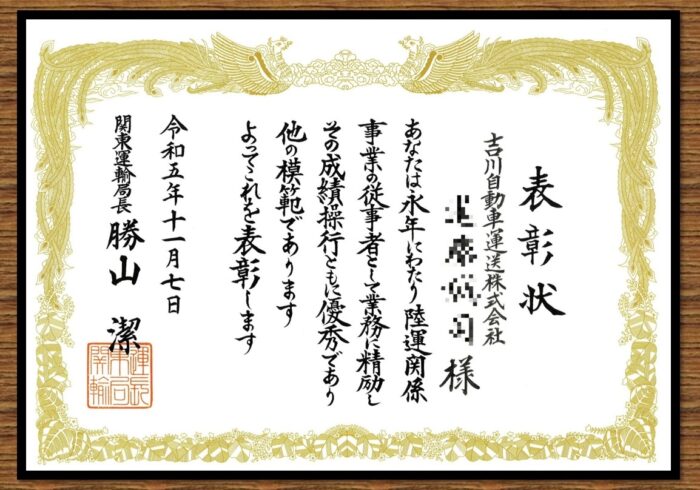 表彰状
吉川自動車運送株式会社
様
あなたは永年にわたり陸運関係
事業の従事者として業務に精励し
その成績操行ともに優秀であり
他の模範であります
よってこれを表彰します
令和五年十一月七日
関東運輸局長 勝山 潔
関東運輸局長